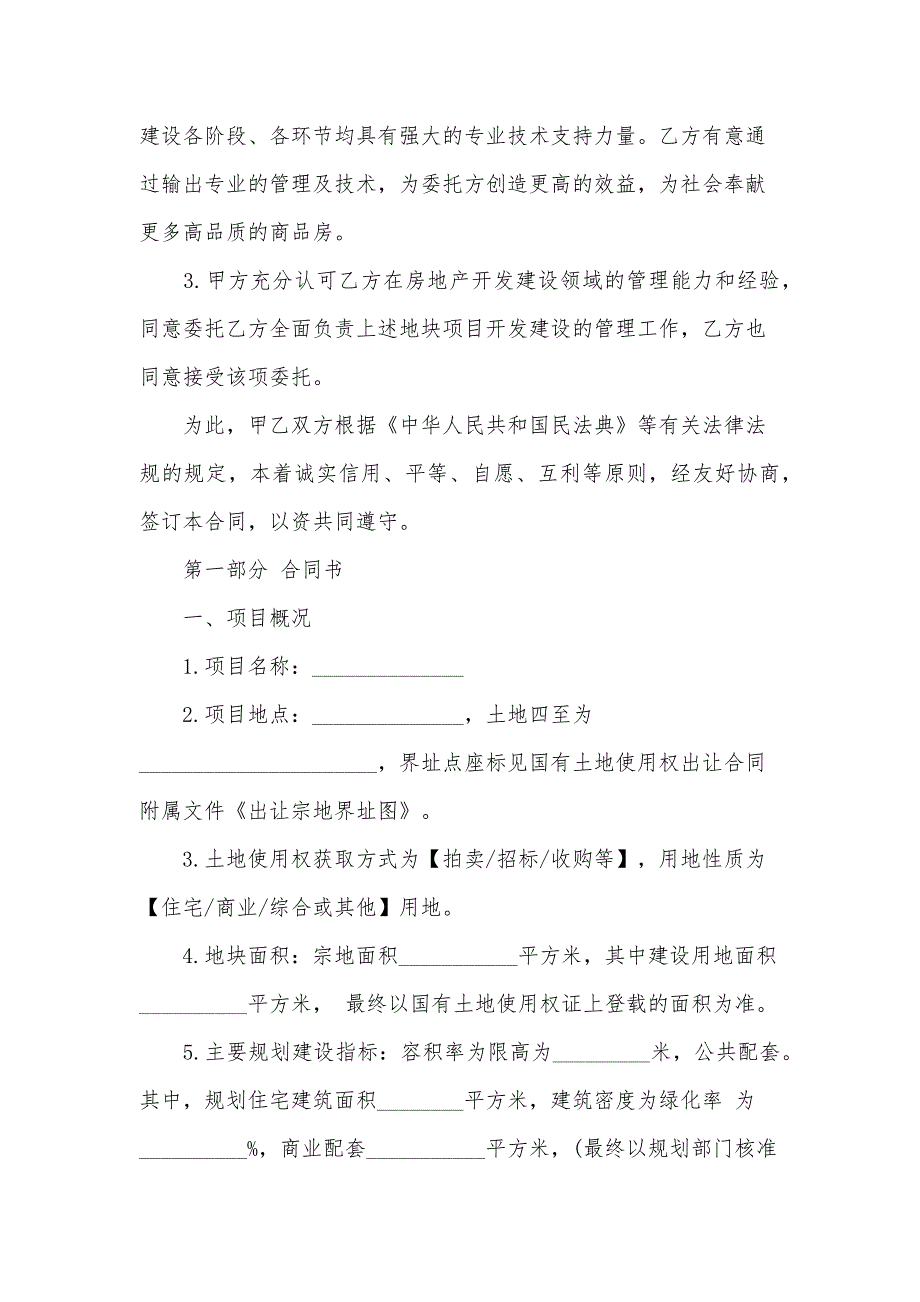 建设各阶段、各环节均具有强大的专业技术支持力量。乙方有意通
过输出专业的管理及技术，为委托方创造更高的效益，为社会奉献
更多高品质的商品房。
3.甲方充分认可乙方在房地产开发建设领域的管理能力和经验，
同意委托乙方全面负责上述地块项目开发建设的管理工作，乙方也
同意接受该项委托。
为此，甲乙双方根据《中华人民共和国民法典》等有关法律法
规的规定，本着诚实信用、平等、自愿、互利等原则，经友好协商，
签订本合同，以资共同遵守。
第一部分 合同书
一、项目概况
1.项目名称：______________
2.项目地点：______________，土地四至为
______________________，界址点座标见国有土地使用权出让合同
附属文件《出让宗地界址图》。
3.土地使用权获取方式为【拍卖/招标/收购等】，用地性质为
【住宅/商业/综合或其他】用地。
4.地块面积：宗地面积___________平方米，其中建设用地面积
__________平方米， 最终以国有土地使用权证上登载的面积为准。
5.主要规划建设指标：容积率为限高为_________米，公共配套。
其中，规划住宅建筑面积________平方米，建筑密度为绿化率 为
__________%，商业配套___________平方米，(最终以规划部门核准